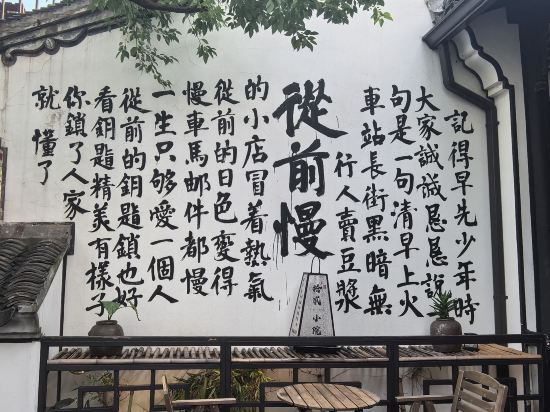 記得早先少年時
大家誠誠懇懇說一
句是一句清早上火
車站長街黑暗無
行人賣豆漿
從前慢
的小店冒着熱氣
從前的日色變得
慢車馬邮件都慢
一生只够愛一個人
從前的鎖也好
看鑰匙精美有樣子
你鎖了人家
就懂了
小院